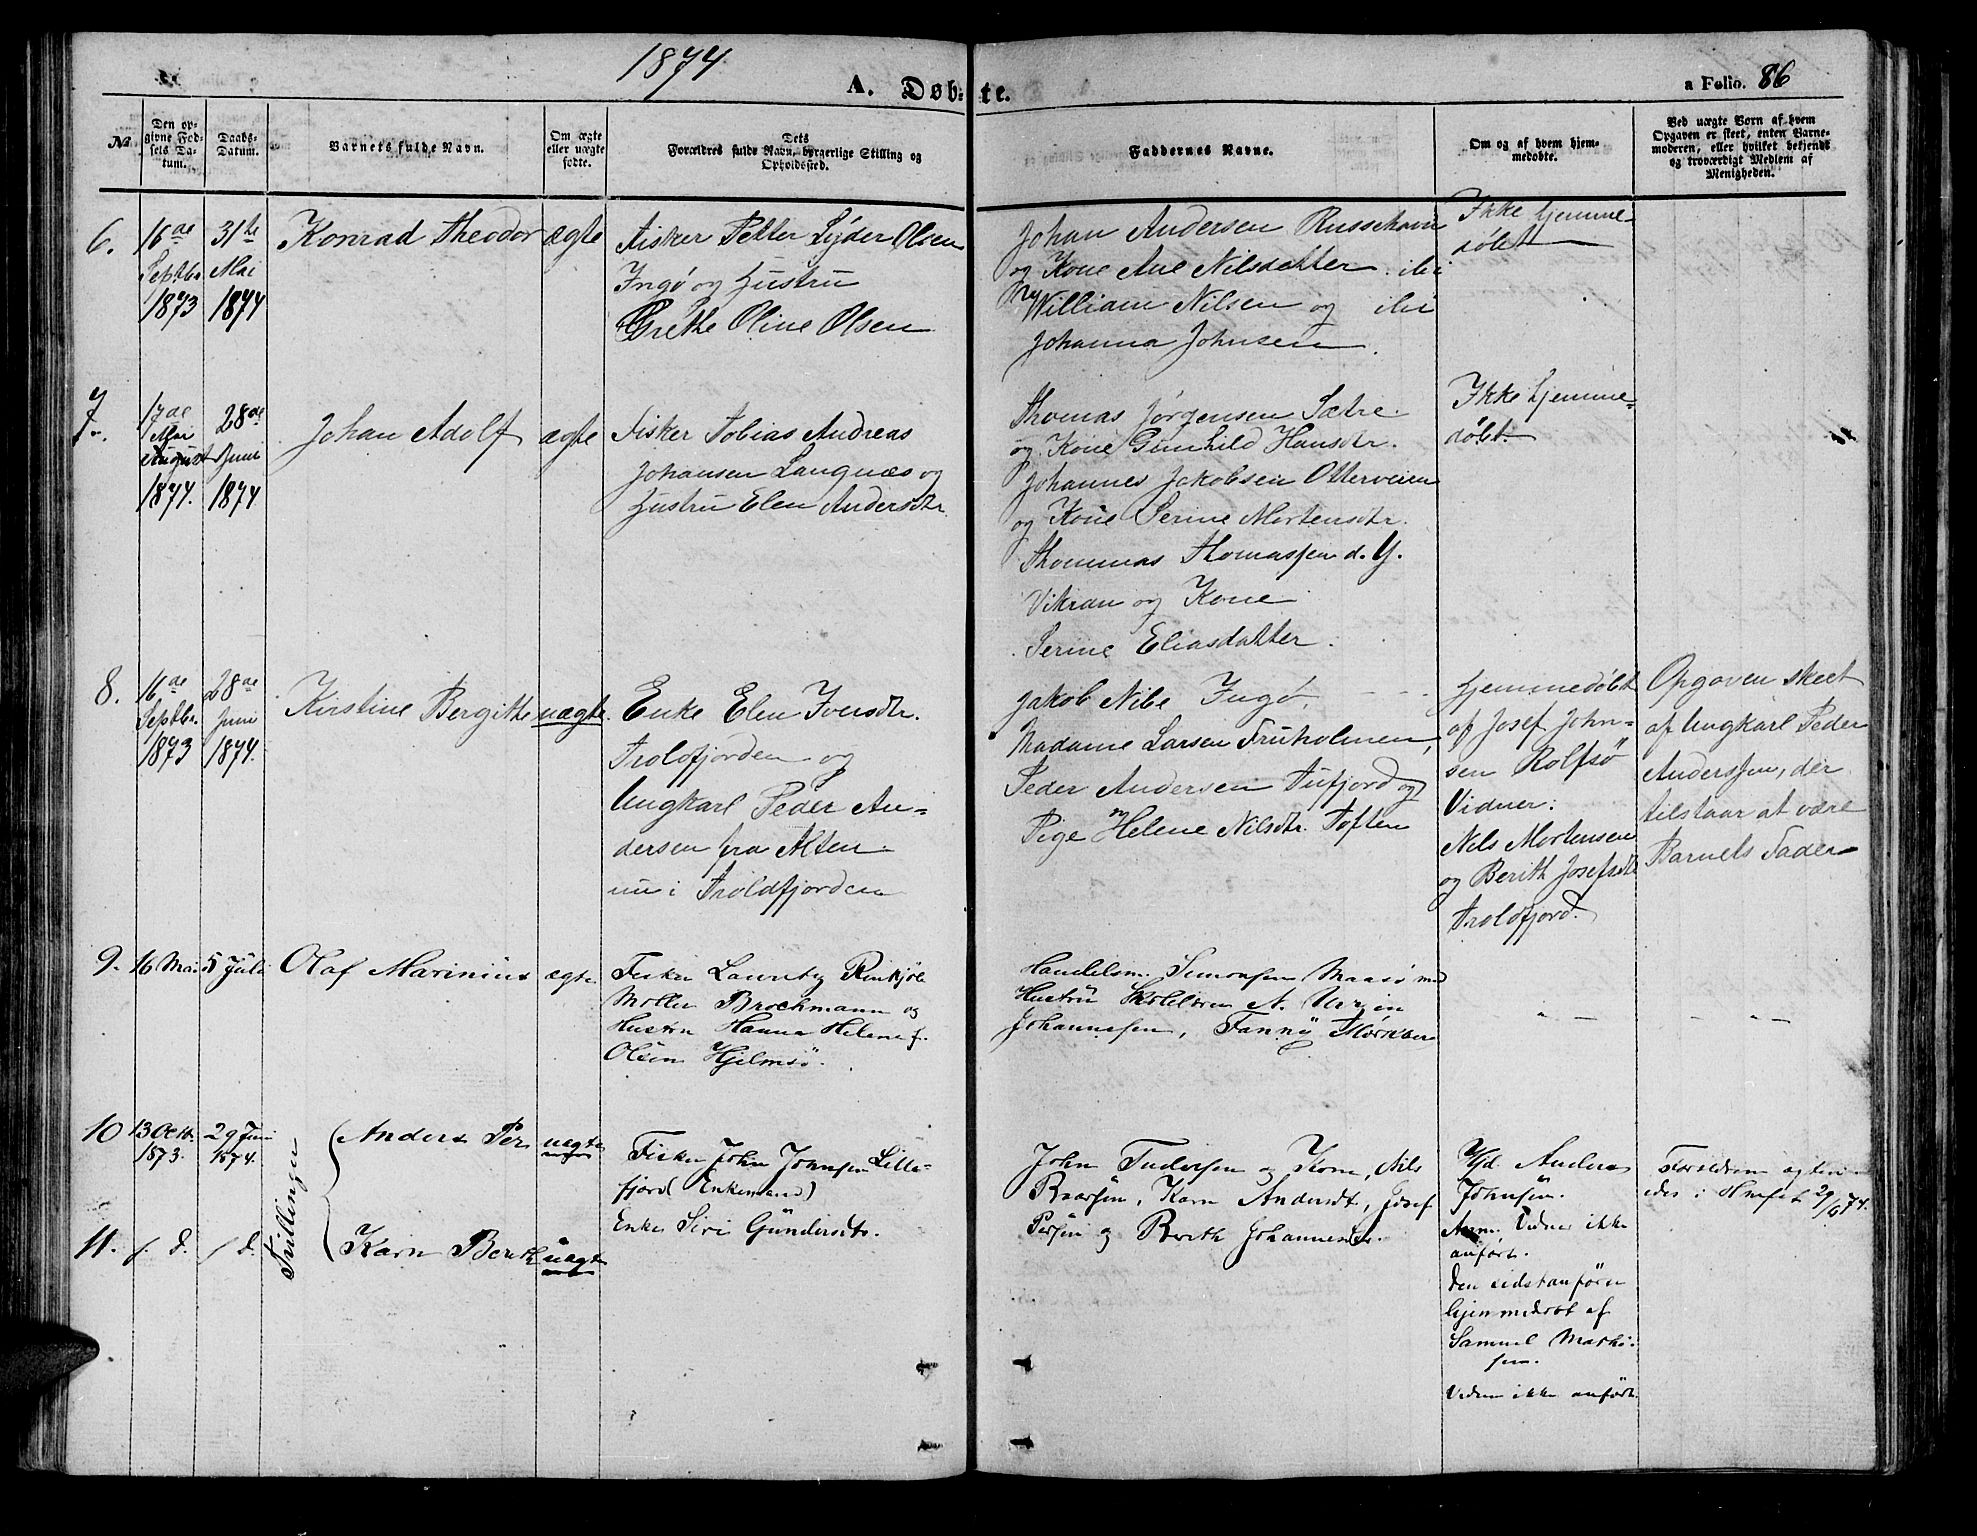 1874
A. Døbte.
a Folio. 86
No.
Den op-
givne Fød-
sels Da-
tum.
Daabs-
Datum.
Barnets fulde Navn.
Om ægte
eller uægte
fødte.
Dets
Forældres fulde Navn, borgerlige Stilling og
Opholdssted.
Faddernes Navne.
Om og af hvem hjem-
medøbte.
Ved uægte Børn af hvem
Opgaven er skeet, enten Barne-
moderen, eller hvilket bekjendt
og troværdigt Medlem af
Menigheden.
6.
16de
Septbr
1873
31te
Mai
1874
Konrad Theodor
ægte
Fisker Petter Lyder Olsen
Ingø og Hustru
Grethe Oline Olsen
Johan Andersen Russehavn
og Kone Ane Nilsdatter ibi
William Nilsen og ibi
Johanna Johnsen
Ikke hjemme-
døbt
7.
17de
Mai
August
1874.
28de
Juni
1874
Johan Adolf
ægte
Fisker Tobias Andreas
Johansen Langnæs og
Hustru Elen Andersdtr.
Thomas Jørgensen Sætre
og Kone Gunhild Hansdtr.
Johannes Jakobsen Otterveien
og Kone Serine Mortensdtr.
Thommas Thomassen d. Y.
Vikran og Kone
Serine Eliasdatter.
Ikke hjemme-
døbt.
8.
16de
Septbr.
1873
28de
Juni
1874.
Kirstine Bergitte
uægte.
Enke Elen Iversdtr.
Troldfjorden og
Ungkarl Peder An-
dersen fra Alten
nu i Troldfjorden
Jakob Nibe Ingø,
Madame Larsen Fruholmen,
Peder Andersen Tufjord og
Pige Helene Nilsdtr. Toften
Hjemmedøbt
af Josef John-
sen Rolfsø
Vidner:
Nils Mortensen
og Berith Josefsdtr
Troldfjord.
Opgaven skeet
af Ungkarl Peder
Anderssen, der
tilstaar at være
Barnets Fader
9.
16 Mai
5 Juli
Olaf Marinius
ægte
Fisker Lauritz Rinkjøb
Møller Brochmann og
Hustru Hanna Helene f.
Olsen Hjelmsø.
Handelsm. Simonsen Maasø med
Hustru
Johannessen, Fanny
" —
— " —
10
13 Octb.
1873.
29 Juni
1874.
Tvillinger
Anders Per
uægte
Fisker John Johnsen Lille-
fjord (Enkemand)
Enke Siri Gundersdtr.
John Tudersen og Kone, Nils
Baarsen, Karn Andersdt, Josef
Persen og Berith Johannesdtr.
Hjd. Anders
Johnsen.
Anm. Vidner ikke
anført.
Den sidstanførte
hjemmedøbt af
Samuel Mathi-
sen.
Vidner ikke anført.
Forældrene agter
i 29/6 74.
11.
f. d.
f. d.
Karn Berith
uægte